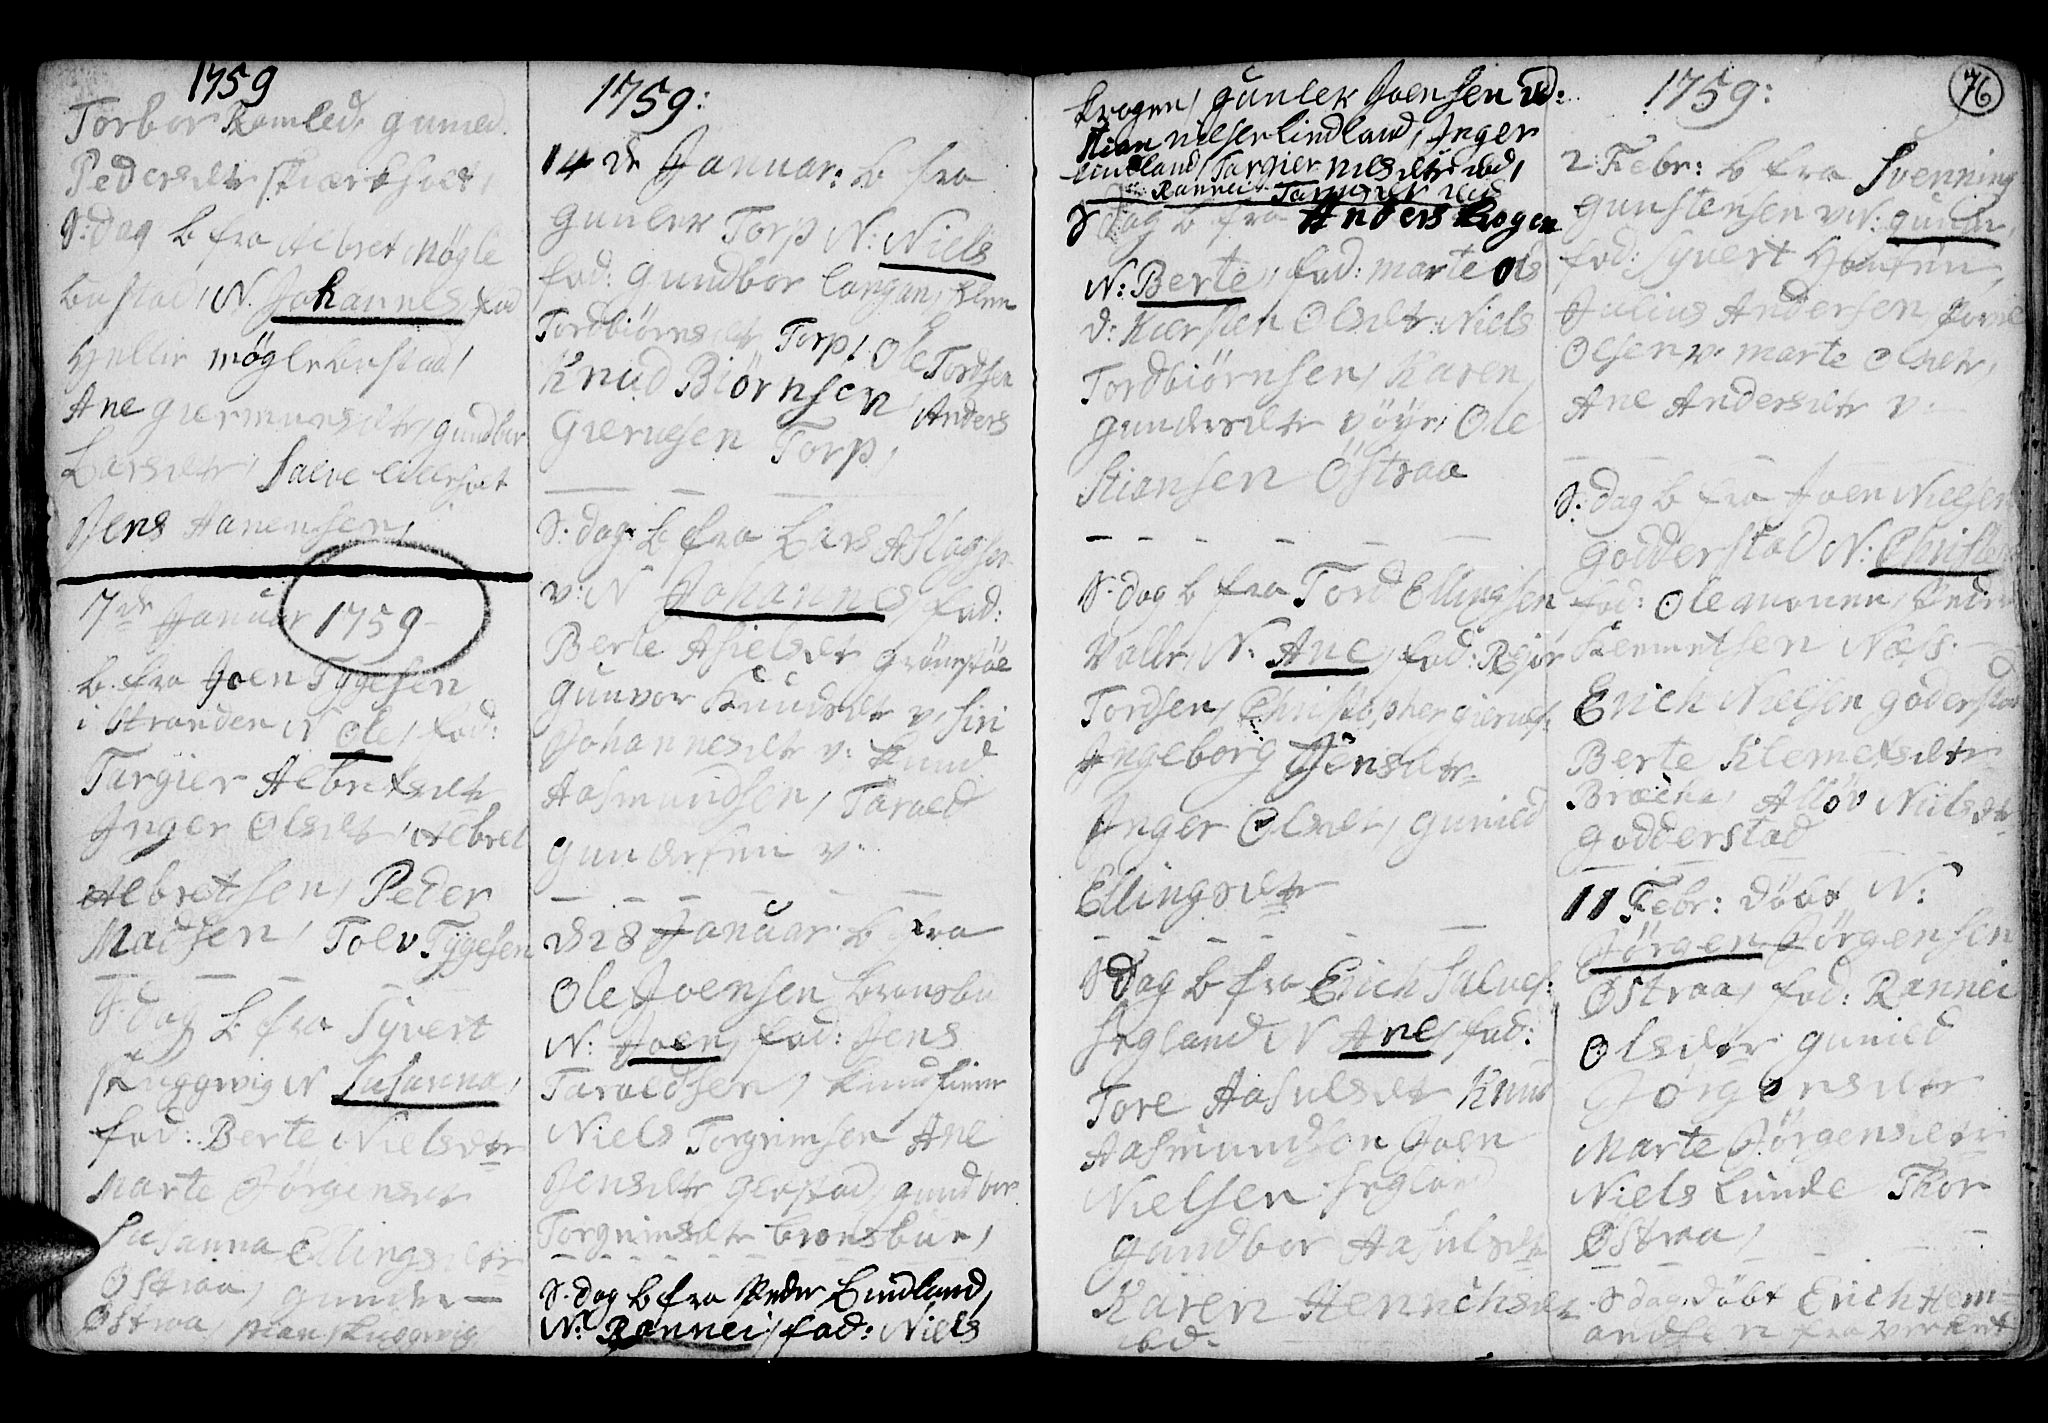 1759
Torbor Ramled, guned
Pedersdtr skiærksøet,
S: dag b fra Albret Møgle
bustad, N. Johannes, fad
Hellie møglebustad,
Ane giermunsdtr, gundbor
Larsdtr, Salve Lillesøt
Jens Hanensen,
7de Januar 1759
b. fra Joen Tygesen
i Stranden N Ole, fad:
Targier Albretsdtr
Inger Olsdtr, Albret
Albretsen, Peder
Madsen, Tolv Tygesen
S. dag b. fra Syvert
skuggevig N Susanna,
fad: Berte Nielsdtr
Marte Jørgensdtr
Susanna Ellingsdtr
Østraa, gunder
Østraa, stian skuggevig
1759:
14 de Januar: b. fra
gunler Torp N: Niels
fad: gundbor Langan,
Tordbiørnsdtr Torp, Ole Tordsen
Knud Biørnsen, Anders
Gieruesen Torp,
S. dag b fra Lars Aslagsen
v: N Johannes, fad:
Berte Asielsdtr
gunvor Knudsdtr v, siri
Johannesdtr v: Knud
Aasmundsen, Tarald
gundersen v:
d 28 Januar b fra
Ole Joensen bronsbu
N: Joen, fad: Jens
Taraldsen,
Niels Torgrimsen Ane
Jensdtr glastad, gundbor
Torgrimsdtr bronsbue,
S. dag b fra Peder Lindland,
N: Rannei, fad: Niels
krogen, gunler Joensen ibd:
Stian nielsen lindland, Inger
Lindland, Targier nielsdtr ibd,
Rannei
S dag b fra Anders Krogen
N: Berte, fad: marte ols
d: Kiersten Olsdtr: Niels
Tordbiørnsen, Karen
gundersdtr vøye, Ole
Stiansen Østraa
S. dag b fra Tord Ellingsen
Valle, N: Ane, fad: Reiør
Tordsen, Christopher gierues:
Ingeborg Jensdtr
Inger Olsdtr, gunild
Ellingsdtr
S dag b fra Erich Salves:
segland N Ane, fad:
Tore Aasulsdtr Knud
Aasmundsen Joen
Nielsen segland
gundbor Aasulsdtr
Karen Henrichsdtr
ibd.
1759:
76
2: Febr: b fra Svenning
gunstensen v N: gunder,
fad: Syvert Hansen,
Julius Andersen Povel
Olsen v: marte olsdtr,
Ane Andersdtr v:
S: dag b fra Joen Nielsen
godderstad N: Christen
fad: Ole monen, Peder
Klemetsen Næs.
Erich Nielsen godderstad
Berte Klemetsdtr
Bræcka, Alløv Nielsdtr
godderstad
11 Febr: døbt N:
Jørgen Jørgensen
Østraa, fad: Rannei
Olsdtr gunild
Jørgensdtr
Marte Jørgensdtr
Niels Lunde Thor
Østraa,
S dag døbt Erich Hem=
andsen fra verket